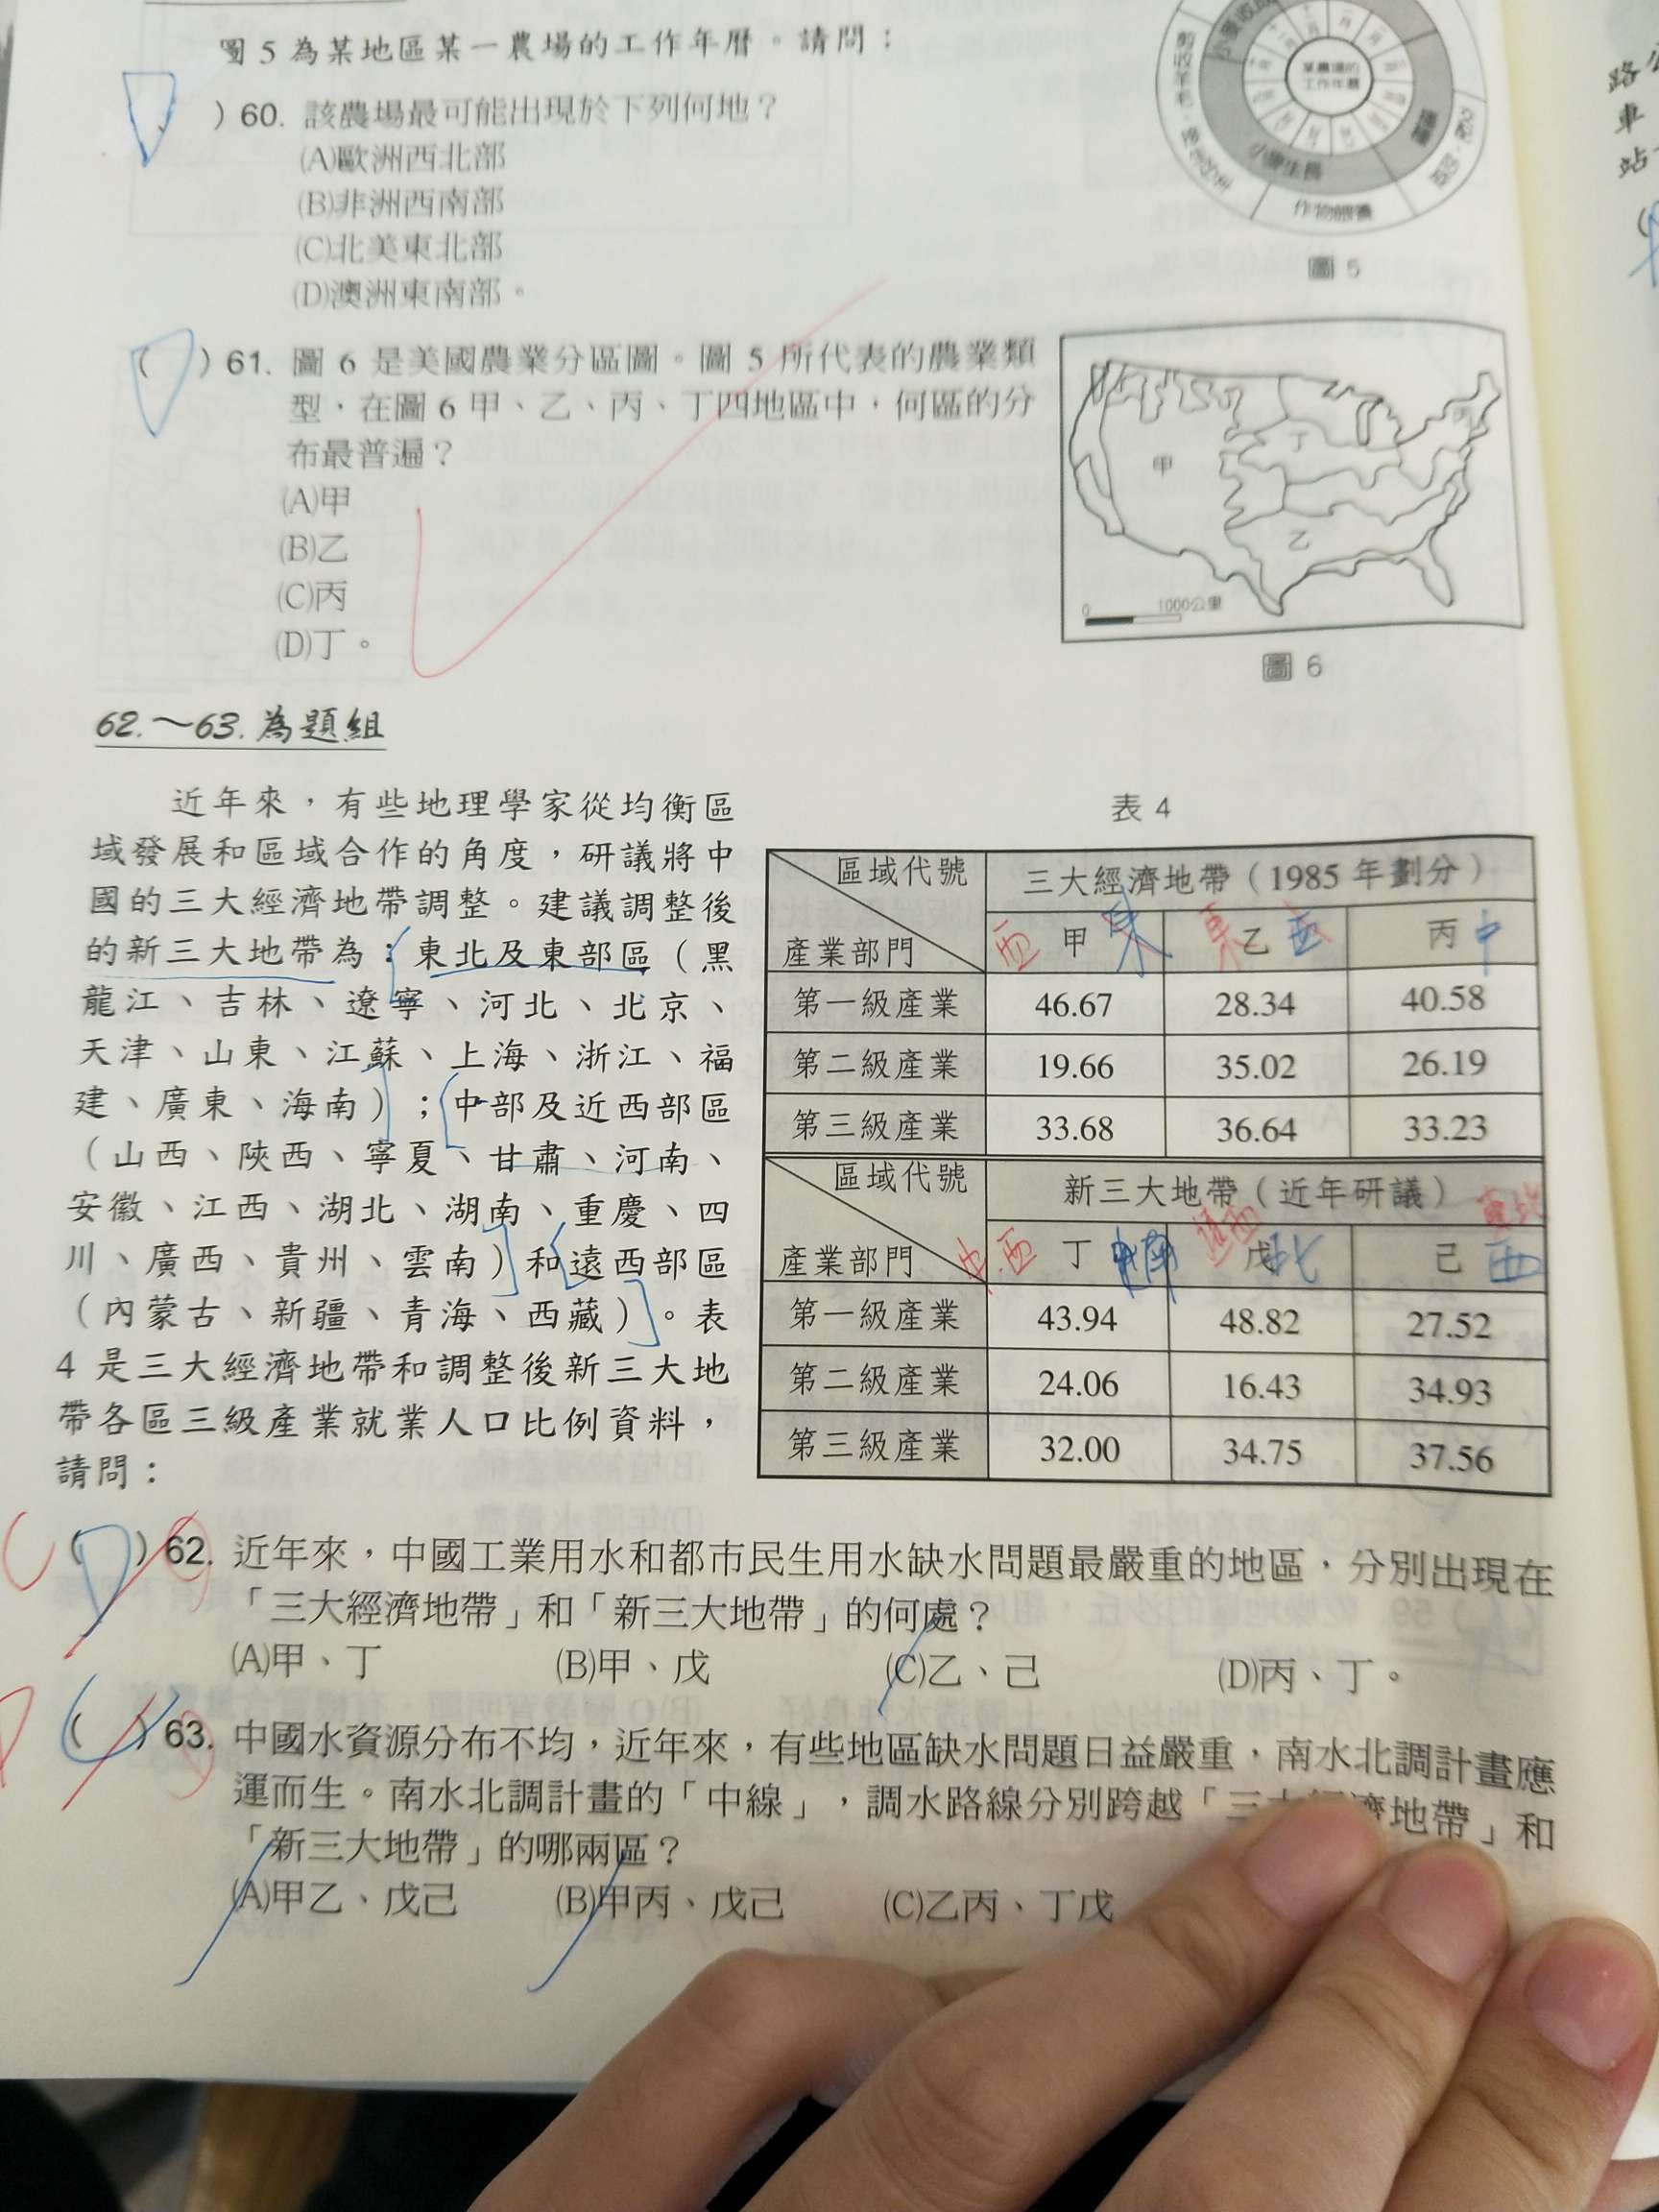 圖 5 為某地區某一農場的工作年曆。請問：
) 60. 該農場最可能出現於下列何地？
(A)歐洲西北部
(B)非洲西南部
(C)北美東北部
(D)澳洲東南部。
某農場的
工作年曆
小麥生長
作物照顧
圖 5
( ) 61. 圖 6 是美國農業分區圖。圖 5 所代表的農業類
型，在圖 6 甲、乙、丙、丁四地區中，何區的分
布最普遍？
(A)甲
(B)乙
(C)丙
(D)丁。
甲
丁
丙
乙
0 1000公里
圖 6
62.～63.為題組
近年來，有些地理學家從均衡區
域發展和區域合作的角度，研議將中
國的三大經濟地帶調整。建議調整後
的新三大地帶為：東北及東部區（黑
龍江、吉林、遼寧、河北、北京、
天津、山東、江蘇、上海、浙江、福
建、廣東、海南）；中部及近西部區
（山西、陝西、寧夏、甘肅、河南、
安徽、江西、湖北、湖南、重慶、四
川、廣西、貴州、雲南）和遠西部區
（內蒙古、新疆、青海、西藏）。表
4 是三大經濟地帶和調整後新三大地
帶各區三級產業就業人口比例資料，
請問：
表 4
區域代號 三大經濟地帶（1985 年劃分）
產業部門 西 甲 東 東 乙 西 丙 中
第一級產業 46.67 28.34 40.58
第二級產業 19.66 35.02 26.19
第三級產業 33.68 36.64 33.23
區域代號 新三大地帶（近年研議） 東北
產業部門 中.西 丁 南 遠西 戊 北 己 西
第一級產業 43.94 48.82 27.52
第二級產業 24.06 16.43 34.93
第三級產業 32.00 34.75 37.56
C ( D ) 62. 近年來，中國工業用水和都市民生用水缺水問題最嚴重的地區，分別出現在
「三大經濟地帶」和「新三大地帶」的何處？
(A)甲、丁 (B)甲、戊 (C)乙、己 (D)丙、丁。
D ( C ) 63. 中國水資源分布不均，近年來，有些地區缺水問題日益嚴重，南水北調計畫應
運而生。南水北調計畫的「中線」，調水路線分別跨越「三大經濟地帶」和
「新三大地帶」的哪兩區？
(A)甲乙、戊己 (B)甲丙、戊己 (C)乙丙、丁戊
路
車
站